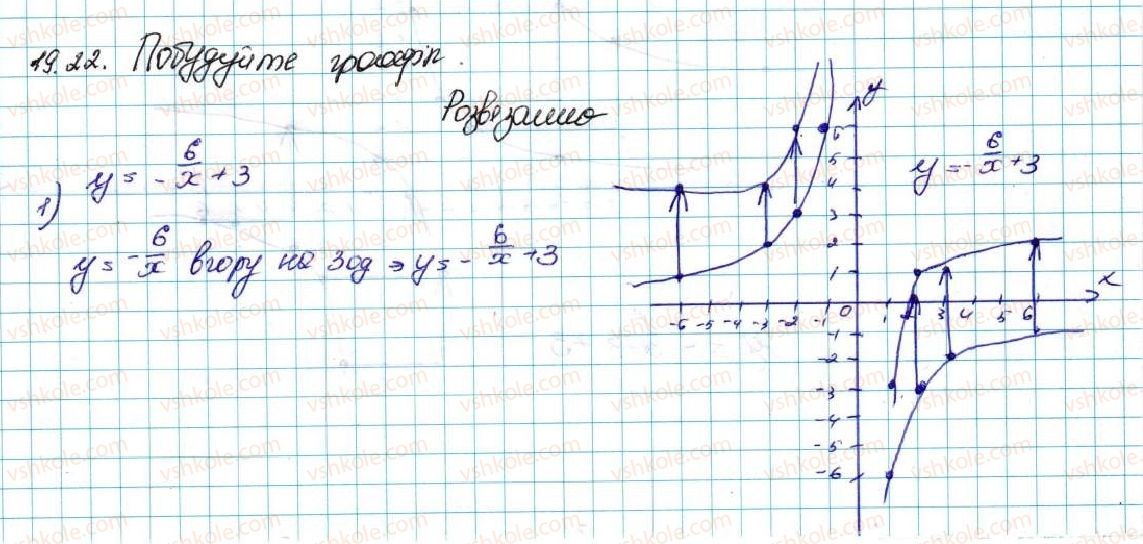 19.22. Побудуйте графік.
Розв'язання
1) y = -6/x + 3
y = -6/x вгору на 3 од ⇒ y = -6/x + 3
y = -6/x + 3
y
x
6
5
4
3
2
1
-6 -5 -4 -3 -2 -1 0 1 2 3 4 5 6
-1
-2
-3
-4
-5
-6
vshkole.com